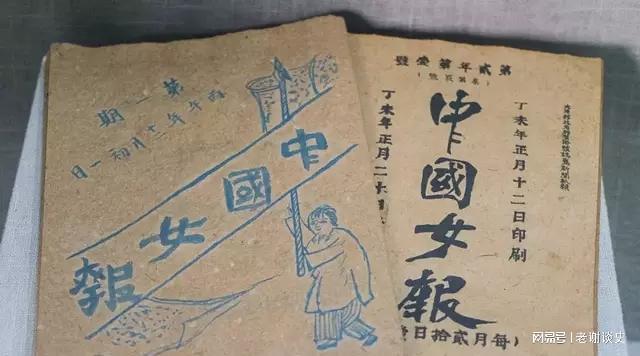 第一期
丙午年十二月初一日
中國女報
第貳年第壹號
丁未年正月十二日印刷
中國女報
丁未年正月二十日
(每月貳拾日發
网易号 | 老谢谈史